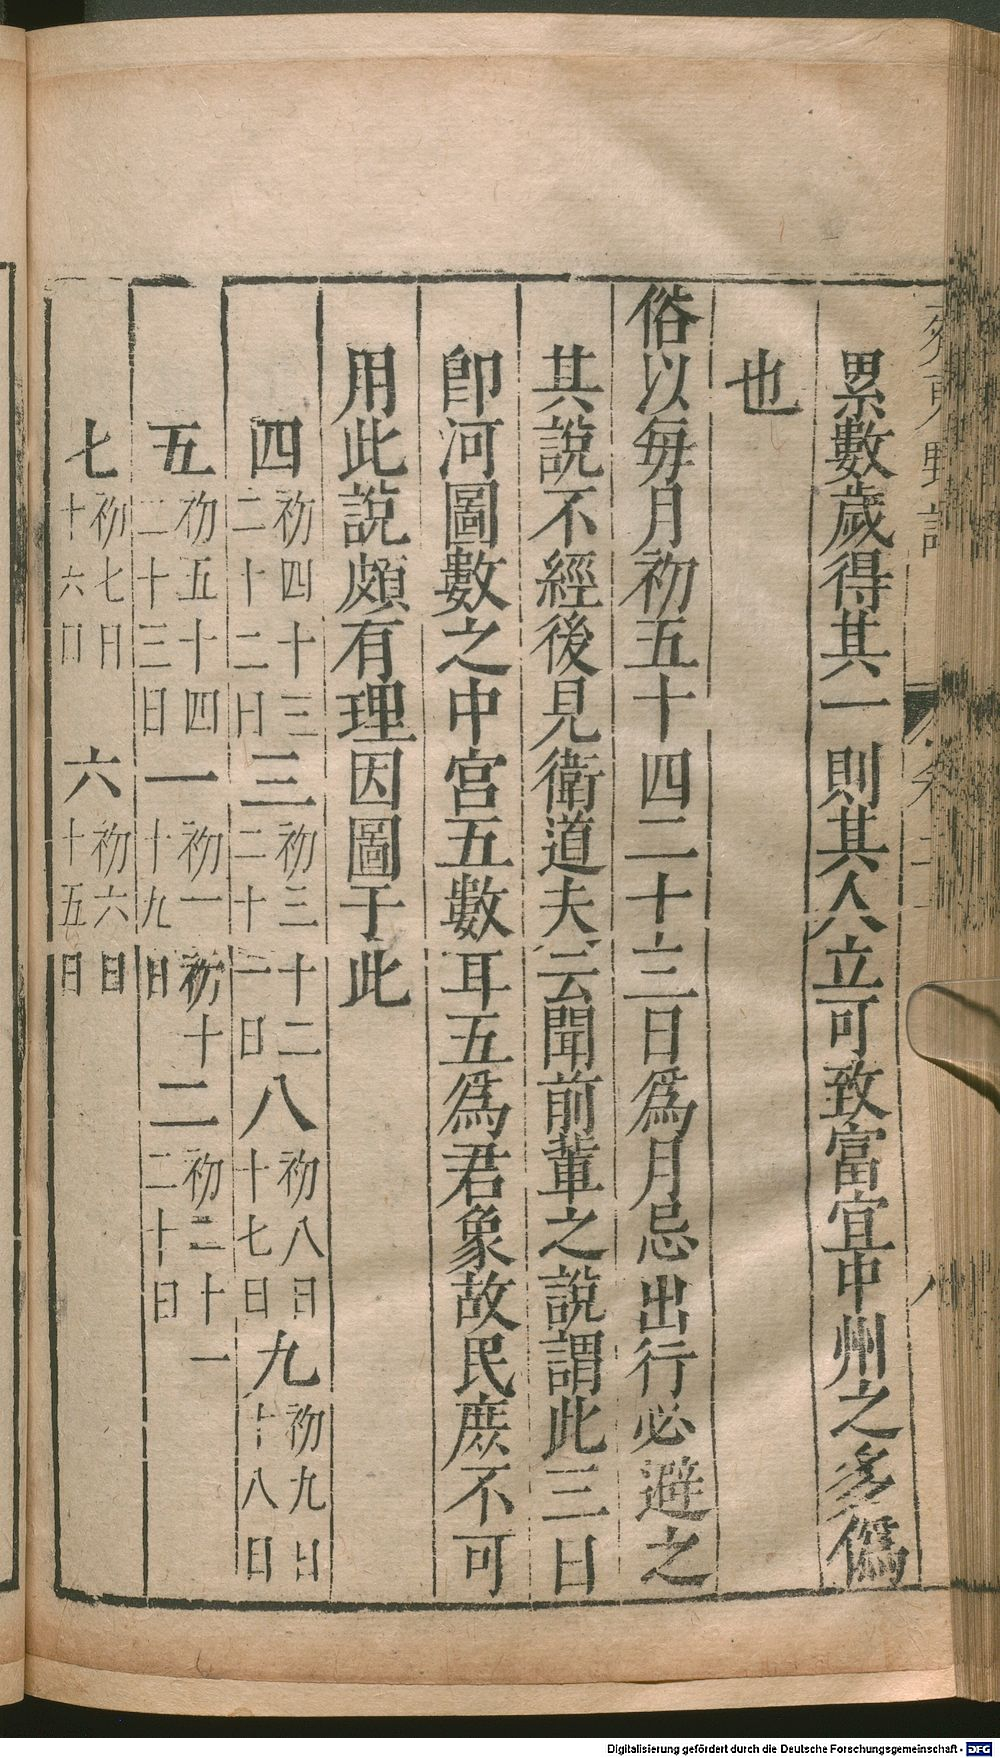 累數歲得其一則其人立可致富宜中州之多僞
也
俗以每月初五十四二十三日爲月忌出行必避之
其說不經後見衛道夫云聞前輩之說謂此三日
卽河圖數之中宮五數耳五爲君象故民庶不可
用此說頗有理因圖于此
四 初四十三二十二日 三 初三十二二十一日 八 初八日十七日 九 初九日十八日
五 初五十四二十三日 一 初一初十十九日 二 初二十一二十日
七 初七日十六日 六 初六日十五日
齊東野語
八
Digitalisierung gefördert durch die Deutsche Forschungsgemeinschaft - DFG